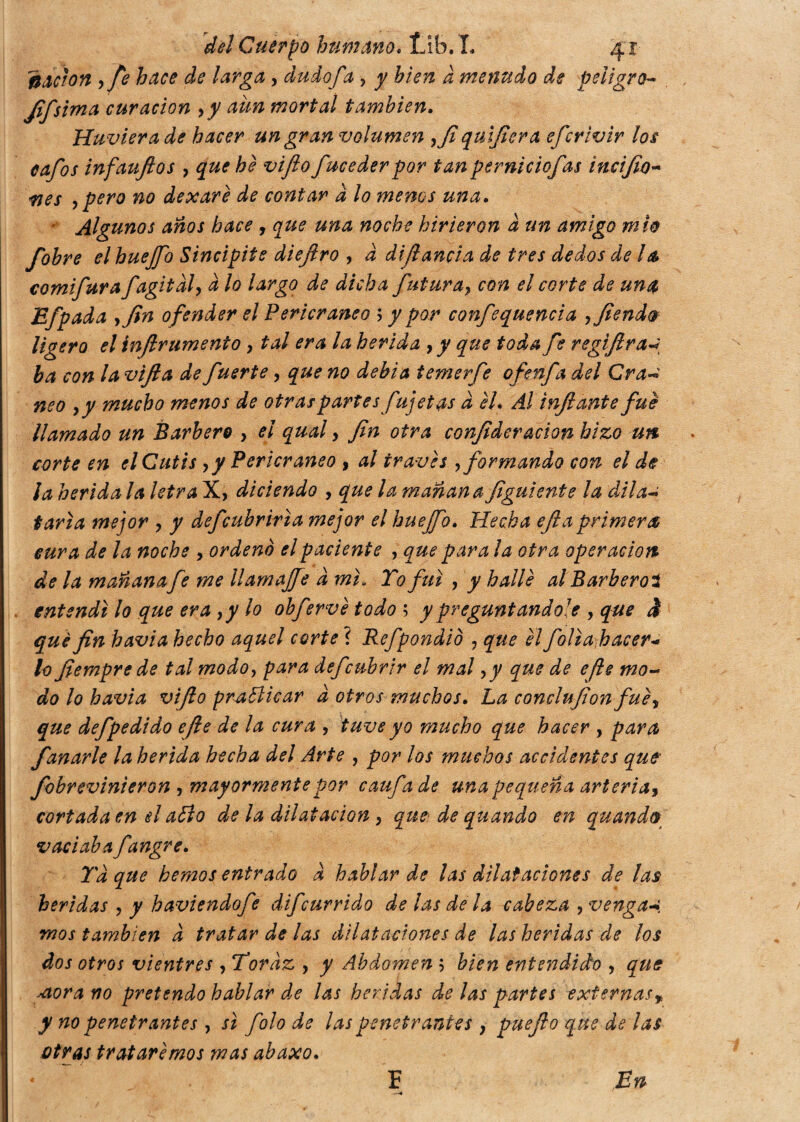 del Cuerpo humano. Lib. I. 41
nacion, ſe hace de larga, dudoſa, y bien à menudo de peligro-
ſiſsima curacion, y aùn mortal tambien.
Huviera de hacer un gran volumen, ſi quiſiera eſcrivir los
caſos infauſtos, que hè viſto ſuceder por tan pernicioſas inciſio-
nes, pero no dexarè de contar à lo menos una.
Algunos años hace, que una noche hirieron à un amigo mio
ſobre el hueſſo Sincipite dieſtro, à diſtancia de tres dedos de la
comiſura ſagitàl, à lo largo de dicha ſutura, con el corte de una
Eſpada, ſin ofender el Pericraneo; y por conſequencia, ſiendo
ligero el inſtrumento, tal era la herida, y que toda ſe regiſtra-
ba con la viſta de ſuerte, que no debia temerſe ofenſa del Cra-
neo, y mucho menos de otras partes ſujetas à èl. Al inſtante fuè
llamado un Barbero, el qual, ſin otra conſideracion hizo un
corte en el Cutis, y Pericraneo, al travès, formando con el de
la herida la letra X, diciendo, que la mañana ſiguiente la dila-
tarìa mejor, y deſcubrirìa mejor el hueſſo. Hecha eſta primera
cura de la noche, ordenò el paciente, que para la otra operacion
de la mañana ſe me llamaſſe à mì. Yo fuì, y hallè al Barbero:
entendì lo que era, y lo obſervè todo; y preguntandole, que à
què fin havia hecho aquel corte? Reſpondiò, que èl ſolìa hacer-
lo ſiempre de tal modo, para deſcubrir el mal, y que de eſte mo-
do lo havia viſto practicar à otros muchos. La concluſion fuè,
que deſpedido eſte de la cura, tuve yo mucho que hacer, para
ſanarle la herida hecha del Arte, por los muchos accidentes que
ſobrevinieron, mayormente por cauſa de una pequeña arteria,
cortada en el acto de la dilatacion, que de quando en quando
vaciaba ſangre.
Yà que hemos entrado à hablar de las dilataciones de las
heridas, y haviendoſe diſcurrido de las de la cabeza, venga-
mos tambien à tratar de las dilataciones de las heridas de los
dos otros vientres, Toràz, y Abdomen; bien entendido, que
aora no pretendo hablar de las heridas de las partes externas,
y no penetrantes, sì ſolo de las penetrantes, pueſto que de las
otras tratarèmos mas abaxo.
E En